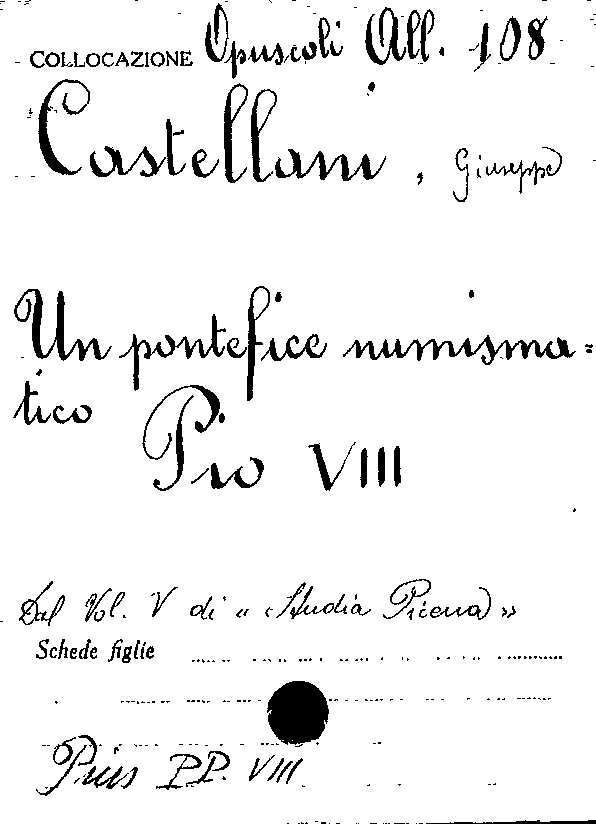 COLLOCAZIONE Opuscoli All. 108
Castellani, Giuseppe
Un pontefice numisma=
tico
Pio VIII
Dal Vol. V di "Studia Picena"
Schede figlie
Pius PP. VIII